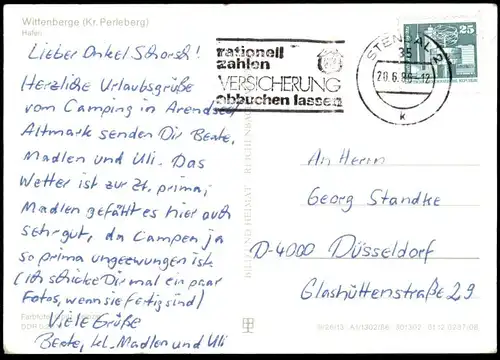 Wittenberge (Kr. Perleberg)
Hafen
Lieber Onkel Schorsch!
Herzliche Urlaubsgrüße
vom Camping in Arendsee/
Altmark senden Dir Beate,
Madlen und Uli. Das
Wetter ist zur Zt. prima,
Madlen gefällt es hier auch
sehr gut, da Campen ja
so prima ungezwungen ist.
(Ich schicke Dir mal ein paar
Fotos, wenn sie fertig sind)
Viele Grüße
Beate, kl. Madlen und Uli
rationell
zahlen
VERSICHERUNG
abbuchen lassen
STENDAL 2
35
20.6.88-12
k
25
BILD UND HEIMAT REICHENBACH
An Herrn
Georg Standke
D-4000 Düsseldorf
Glashüttenstraße 29